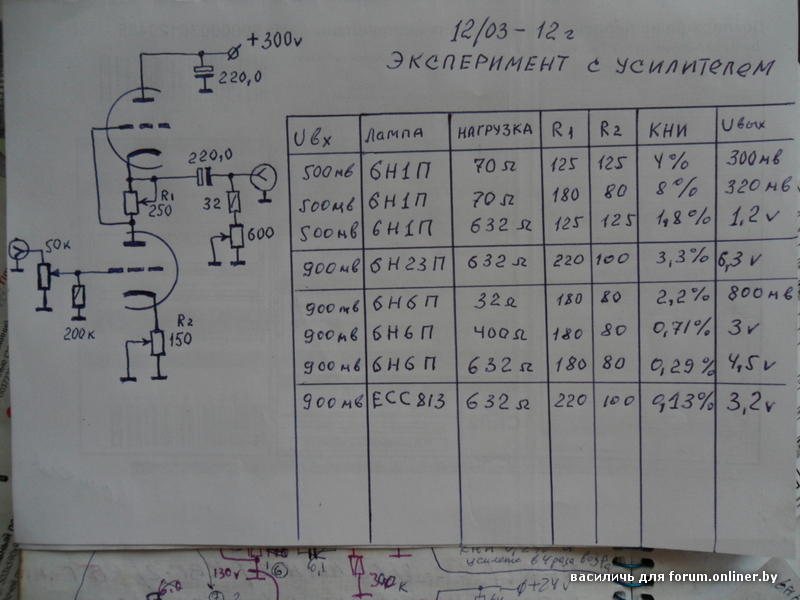 12/03-12 г
ЭКСПЕРИМЕНТ С УСИЛИТЕЛЕМ
+300v
220,0
220,0
R1
250
32
600
50к
200к
R2
150
Uвх ЛАМПА НАГРУЗКА R1 R2 КНИ Uвых
500мв 6Н1П 70Ω 125 125 4% 300мв
500мв 6Н1П 70Ω 180 80 8% 320мв
500мв 6Н1П 632Ω 125 125 1,8% 1,2v
900мв 6Н23П 632Ω 220 100 3,3% 6,3v
900мв 6Н6П 32Ω 180 80 2,2% 800мв
900мв 6Н6П 400Ω 180 80 0,71% 3v
900мв 6Н6П 632Ω 180 80 0,29% 4,5v
900мв ECC813 632Ω 220 100 0,13% 3,2v
130v
6
0,1
300к
+24v
василичь для forum.onliner.by